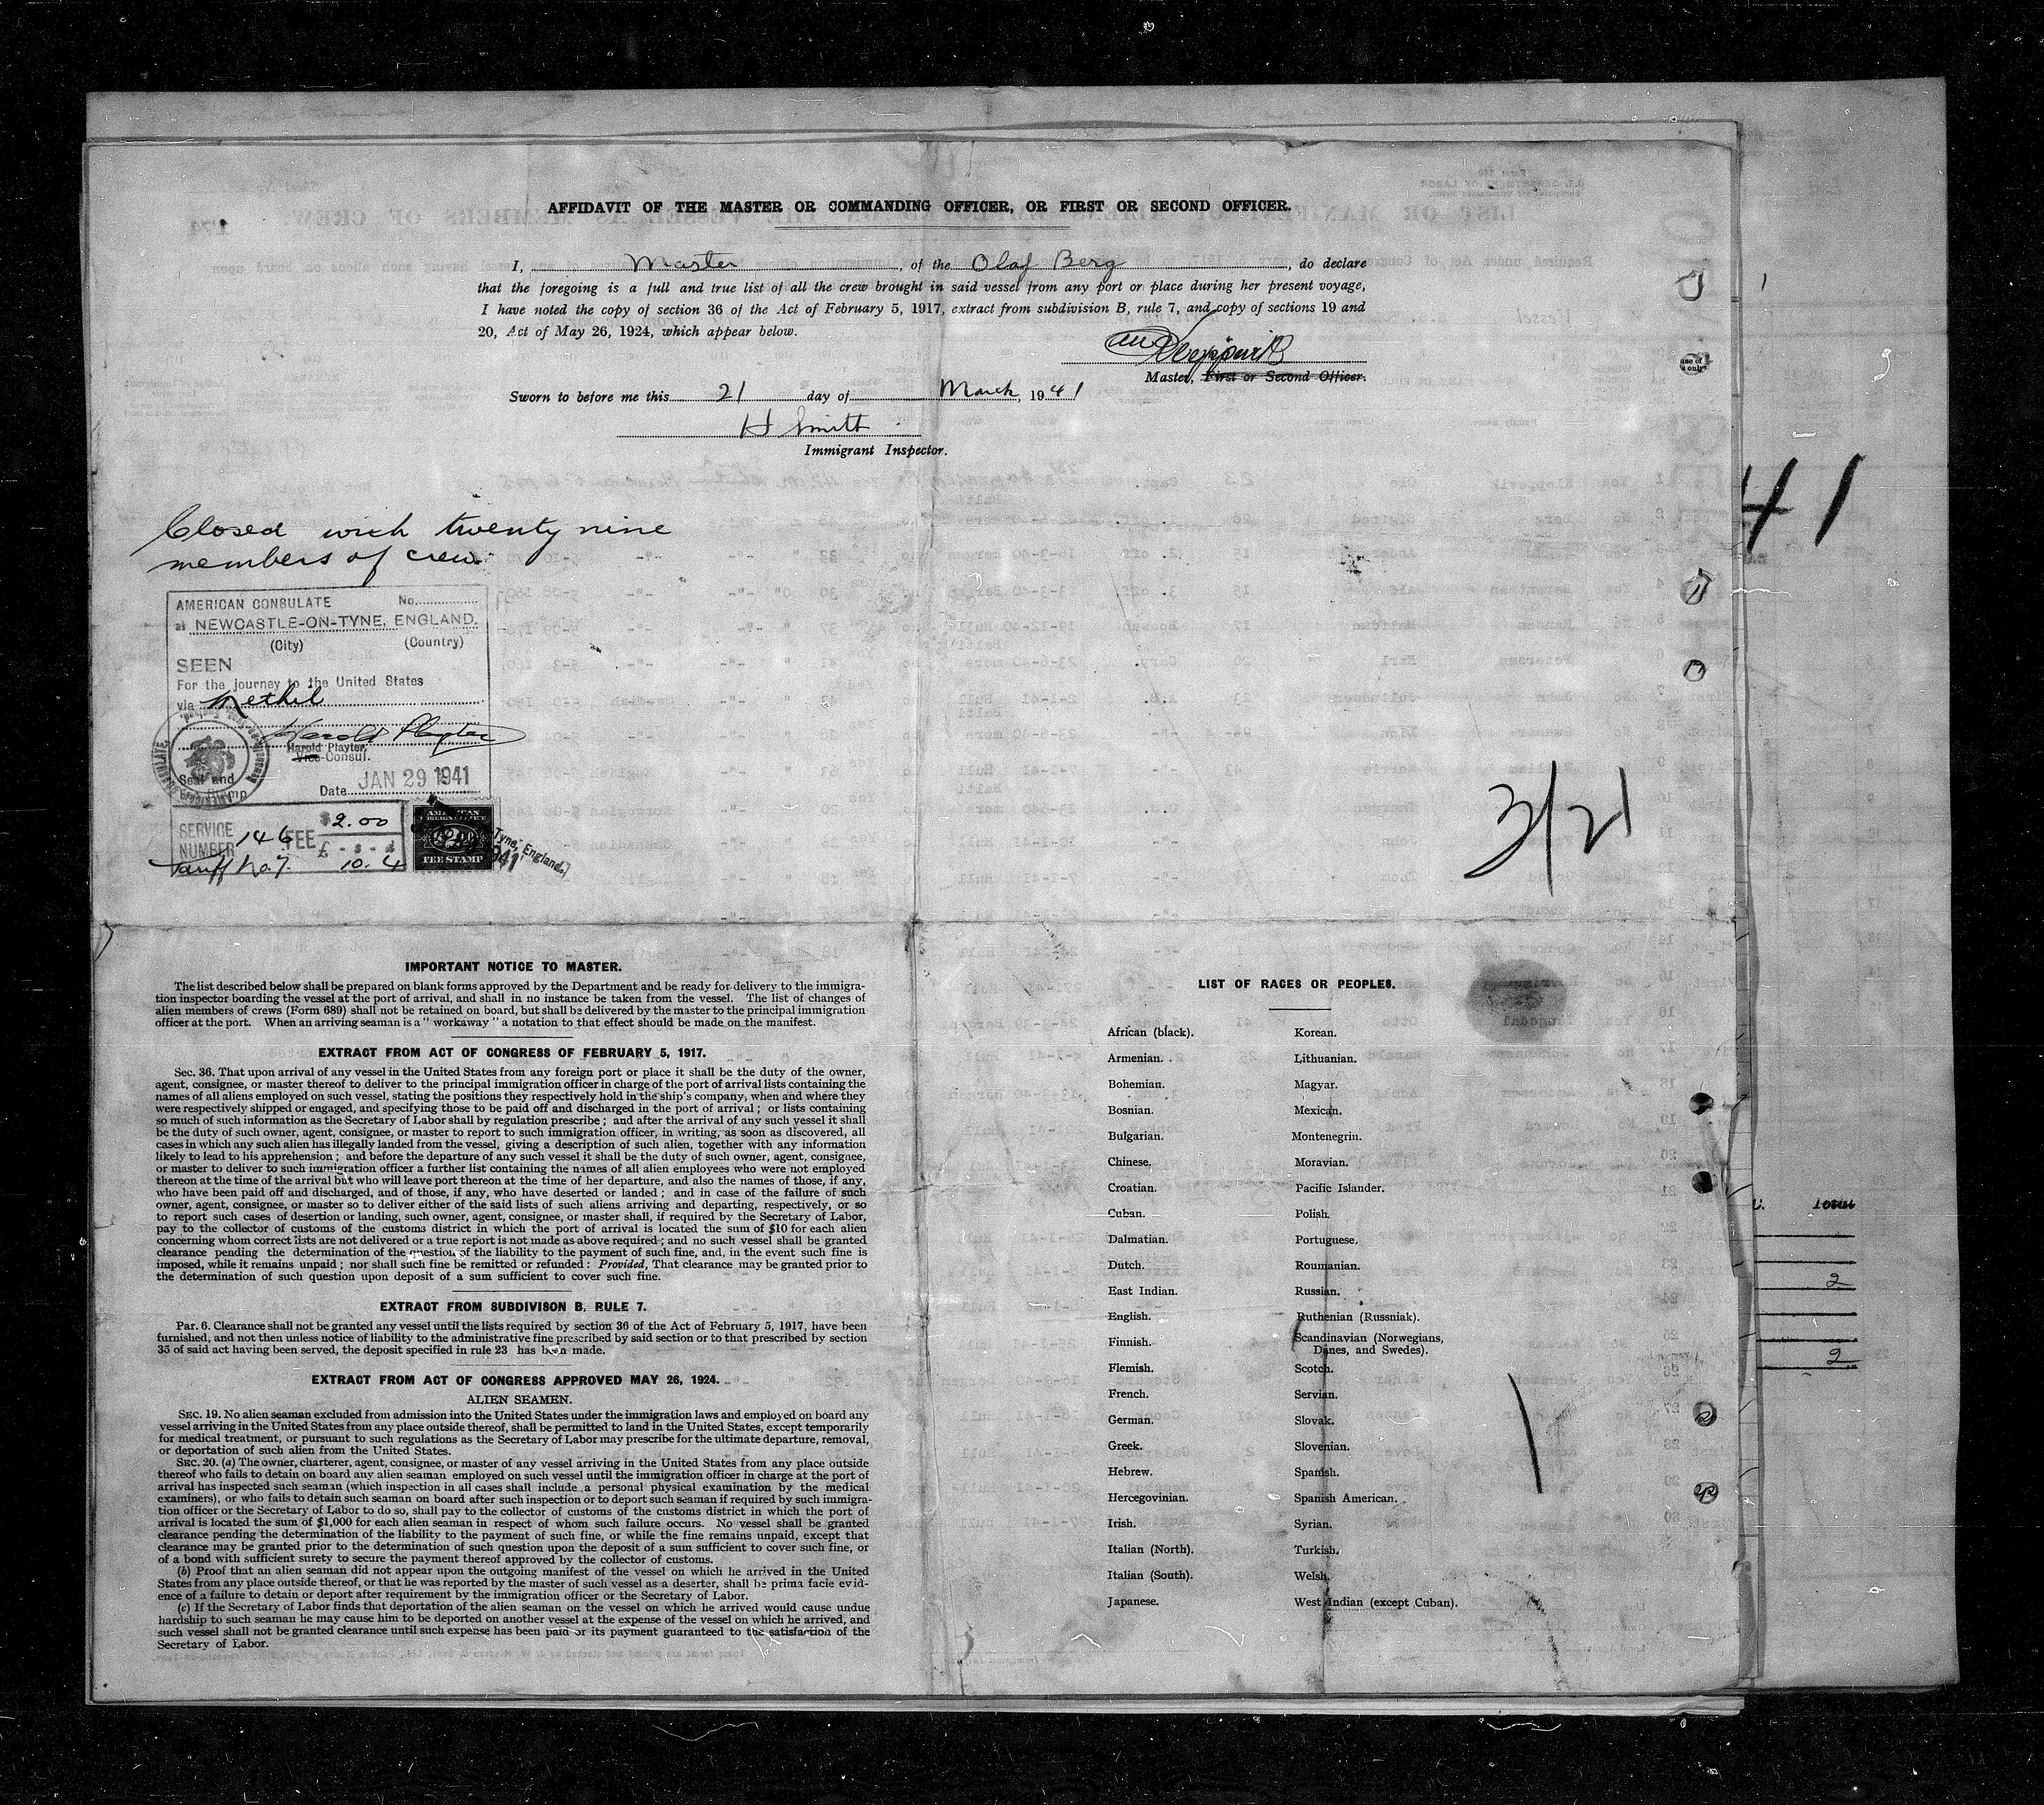 AFFIDAVIT OF THE MASTER OR COMMANDING OFFICER, OR FIRST OR SECOND OFFICER.
I, Master, of the Olaf Berg, do declare
that the foregoing is a full and true list of all the crew brought in said vessel from any port or place during her present voyage,
I have noted the copy of section 36 of the Act of February 5, 1917, extract from subdivision B, rule 7, and copy of sections 19 and
20, Act of May 26, 1924, which appear below.
Master, First or Second Officer.
Sworn to before me this 21 day of March, 1941
H Smith
Immigrant Inspector.
41
Closed with twenty nine
members of crew.
AMERICAN CONSULATE No.
at NEWCASTLE-ON-TYNE, ENGLAND.
(City) (Country)
SEEN
For the journey to the United States
via Methil
Harold Playter
Harold Playter,
Vice-Consul.
Seal and
Date JAN 29 1941
SERVICE NUMBER 146 FEE $2.00
£ - s - d
Tariff No. 7. 10. 4
FEE STAMP
Tyne, England.
3/21
IMPORTANT NOTICE TO MASTER.
The list described below shall be prepared on blank forms approved by the Department and be ready for delivery to the immigra-
tion inspector boarding the vessel at the port of arrival, and shall in no instance be taken from the vessel. The list of changes of
alien members of crews (Form 689) shall not be retained on board, but shall be delivered by the master to the principal immigration
officer at the port. When an arriving seaman is a "workaway" a notation to that effect should be made on the manifest.
EXTRACT FROM ACT OF CONGRESS OF FEBRUARY 5, 1917.
Sec. 36. That upon arrival of any vessel in the United States from any foreign port or place it shall be the duty of the owner,
agent, consignee, or master thereof to deliver to the principal immigration officer in charge of the port of arrival lists containing the
names of all aliens employed on such vessel, stating the positions they respectively hold in the ship's company, when and where they
were respectively shipped or engaged, and specifying those to be paid off and discharged in the port of arrival; or lists containing
so much of such information as the Secretary of Labor shall by regulation prescribe; and after the arrival of any such vessel it shall
be the duty of such owner, agent, consignee, or master to report to such immigration officer, in writing, as soon as discovered, all
cases in which any such alien has illegally landed from the vessel, giving a description of such alien, together with any information
likely to lead to his apprehension; and before the departure of any such vessel it shall be the duty of such owner, agent, consignee,
or master to deliver to such immigration officer a further list containing the names of all alien employees who were not employed
thereon at the time of the arrival but who will leave port thereon at the time of her departure, and also the names of those, if any,
who have been paid off and discharged, and of those, if any, who have deserted or landed; and in case of the failure of such
owner, agent, consignee, or master so to deliver either of the said lists of such aliens arriving and departing, respectively, or so
to report such cases of desertion or landing, such owner, agent, consignee, or master shall, if required by the Secretary of Labor,
pay to the collector of customs of the customs district in which the port of arrival is located the sum of $10 for each alien
concerning whom correct lists are not delivered or a true report is not made as above required; and no such vessel shall be granted
clearance pending the determination of the question of the liability to the payment of such fine, and, in the event such fine is
imposed, while it remains unpaid; nor shall such fine be remitted or refunded: Provided, That clearance may be granted prior to
the determination of such question upon deposit of a sum sufficient to cover such fine.
EXTRACT FROM SUBDIVISON B, RULE 7.
Par. 6. Clearance shall not be granted any vessel until the lists required by section 36 of the Act of February 5, 1917, have been
furnished, and not then unless notice of liability to the administrative fine prescribed by said section or to that prescribed by section
35 of said act having been served, the deposit specified in rule 23 has been made.
EXTRACT FROM ACT OF CONGRESS APPROVED MAY 26, 1924.
ALIEN SEAMEN.
SEC. 19. No alien seaman excluded from admission into the United States under the immigration laws and employed on board any
vessel arriving in the United States from any place outside thereof, shall be permitted to land in the United States, except temporarily
for medical treatment, or pursuant to such regulations as the Secretary of Labor may prescribe for the ultimate departure, removal,
or deportation of such alien from the United States.
SEC. 20. (a) The owner, charterer, agent, consignee, or master of any vessel arriving in the United States from any place outside
thereof who fails to detain on board any alien seaman employed on such vessel until the immigration officer in charge at the port of
arrival has inspected such seaman (which inspection in all cases shall include a personal physical examination by the medical
examiners), or who fails to detain such seaman on board after such inspection or to deport such seaman if required by such immigra-
tion officer or the Secretary of Labor to do so, shall pay to the collector of customs of the customs district in which the port of
arrival is located the sum of $1,000 for each alien seaman in respect of whom such failure occurs. No vessel shall be granted
clearance pending the determination of the liability to the payment of such fine, or while the fine remains unpaid, except that
clearance may be granted prior to the determination of such question upon the deposit of a sum sufficient to cover such fine, or
of a bond with sufficient surety to secure the payment thereof approved by the collector of customs.
(b) Proof that an alien seaman did not appear upon the outgoing manifest of the vessel on which he arrived in the United
States from any place outside thereof, or that he was reported by the master of such vessel as a deserter, shall be prima facie evid-
ence of a failure to detain or deport after requirement by the immigration officer or the Secretary of Labor.
(c) If the Secretary of Labor finds that deportation of the alien seaman on the vessel on which he arrived would cause undue
hardship to such seaman he may cause him to be deported on another vessel at the expense of the vessel on which he arrived, and
such vessel shall not be granted clearance until such expense has been paid or its payment guaranteed to the satisfaction of the
Secretary of Labor.
LIST OF RACES OR PEOPLES.
African (black).
Armenian.
Bohemian.
Bosnian.
Bulgarian.
Chinese.
Croatian.
Cuban.
Dalmatian.
Dutch.
East Indian.
English.
Finnish.
Flemish.
French.
German.
Greek.
Hebrew.
Hercegovinian.
Irish.
Italian (North).
Italian (South).
Japanese.
Korean.
Lithuanian.
Magyar.
Mexican.
Montenegrin.
Moravian.
Pacific Islander.
Polish.
Portuguese.
Roumanian.
Russian.
Ruthenian (Russniak).
Scandinavian (Norwegians,
Danes, and Swedes).
Scotch.
Servian.
Slovak.
Slovenian.
Spanish.
Spanish American.
Syrian.
Turkish.
Welsh.
West Indian (except Cuban).
Total
2
2